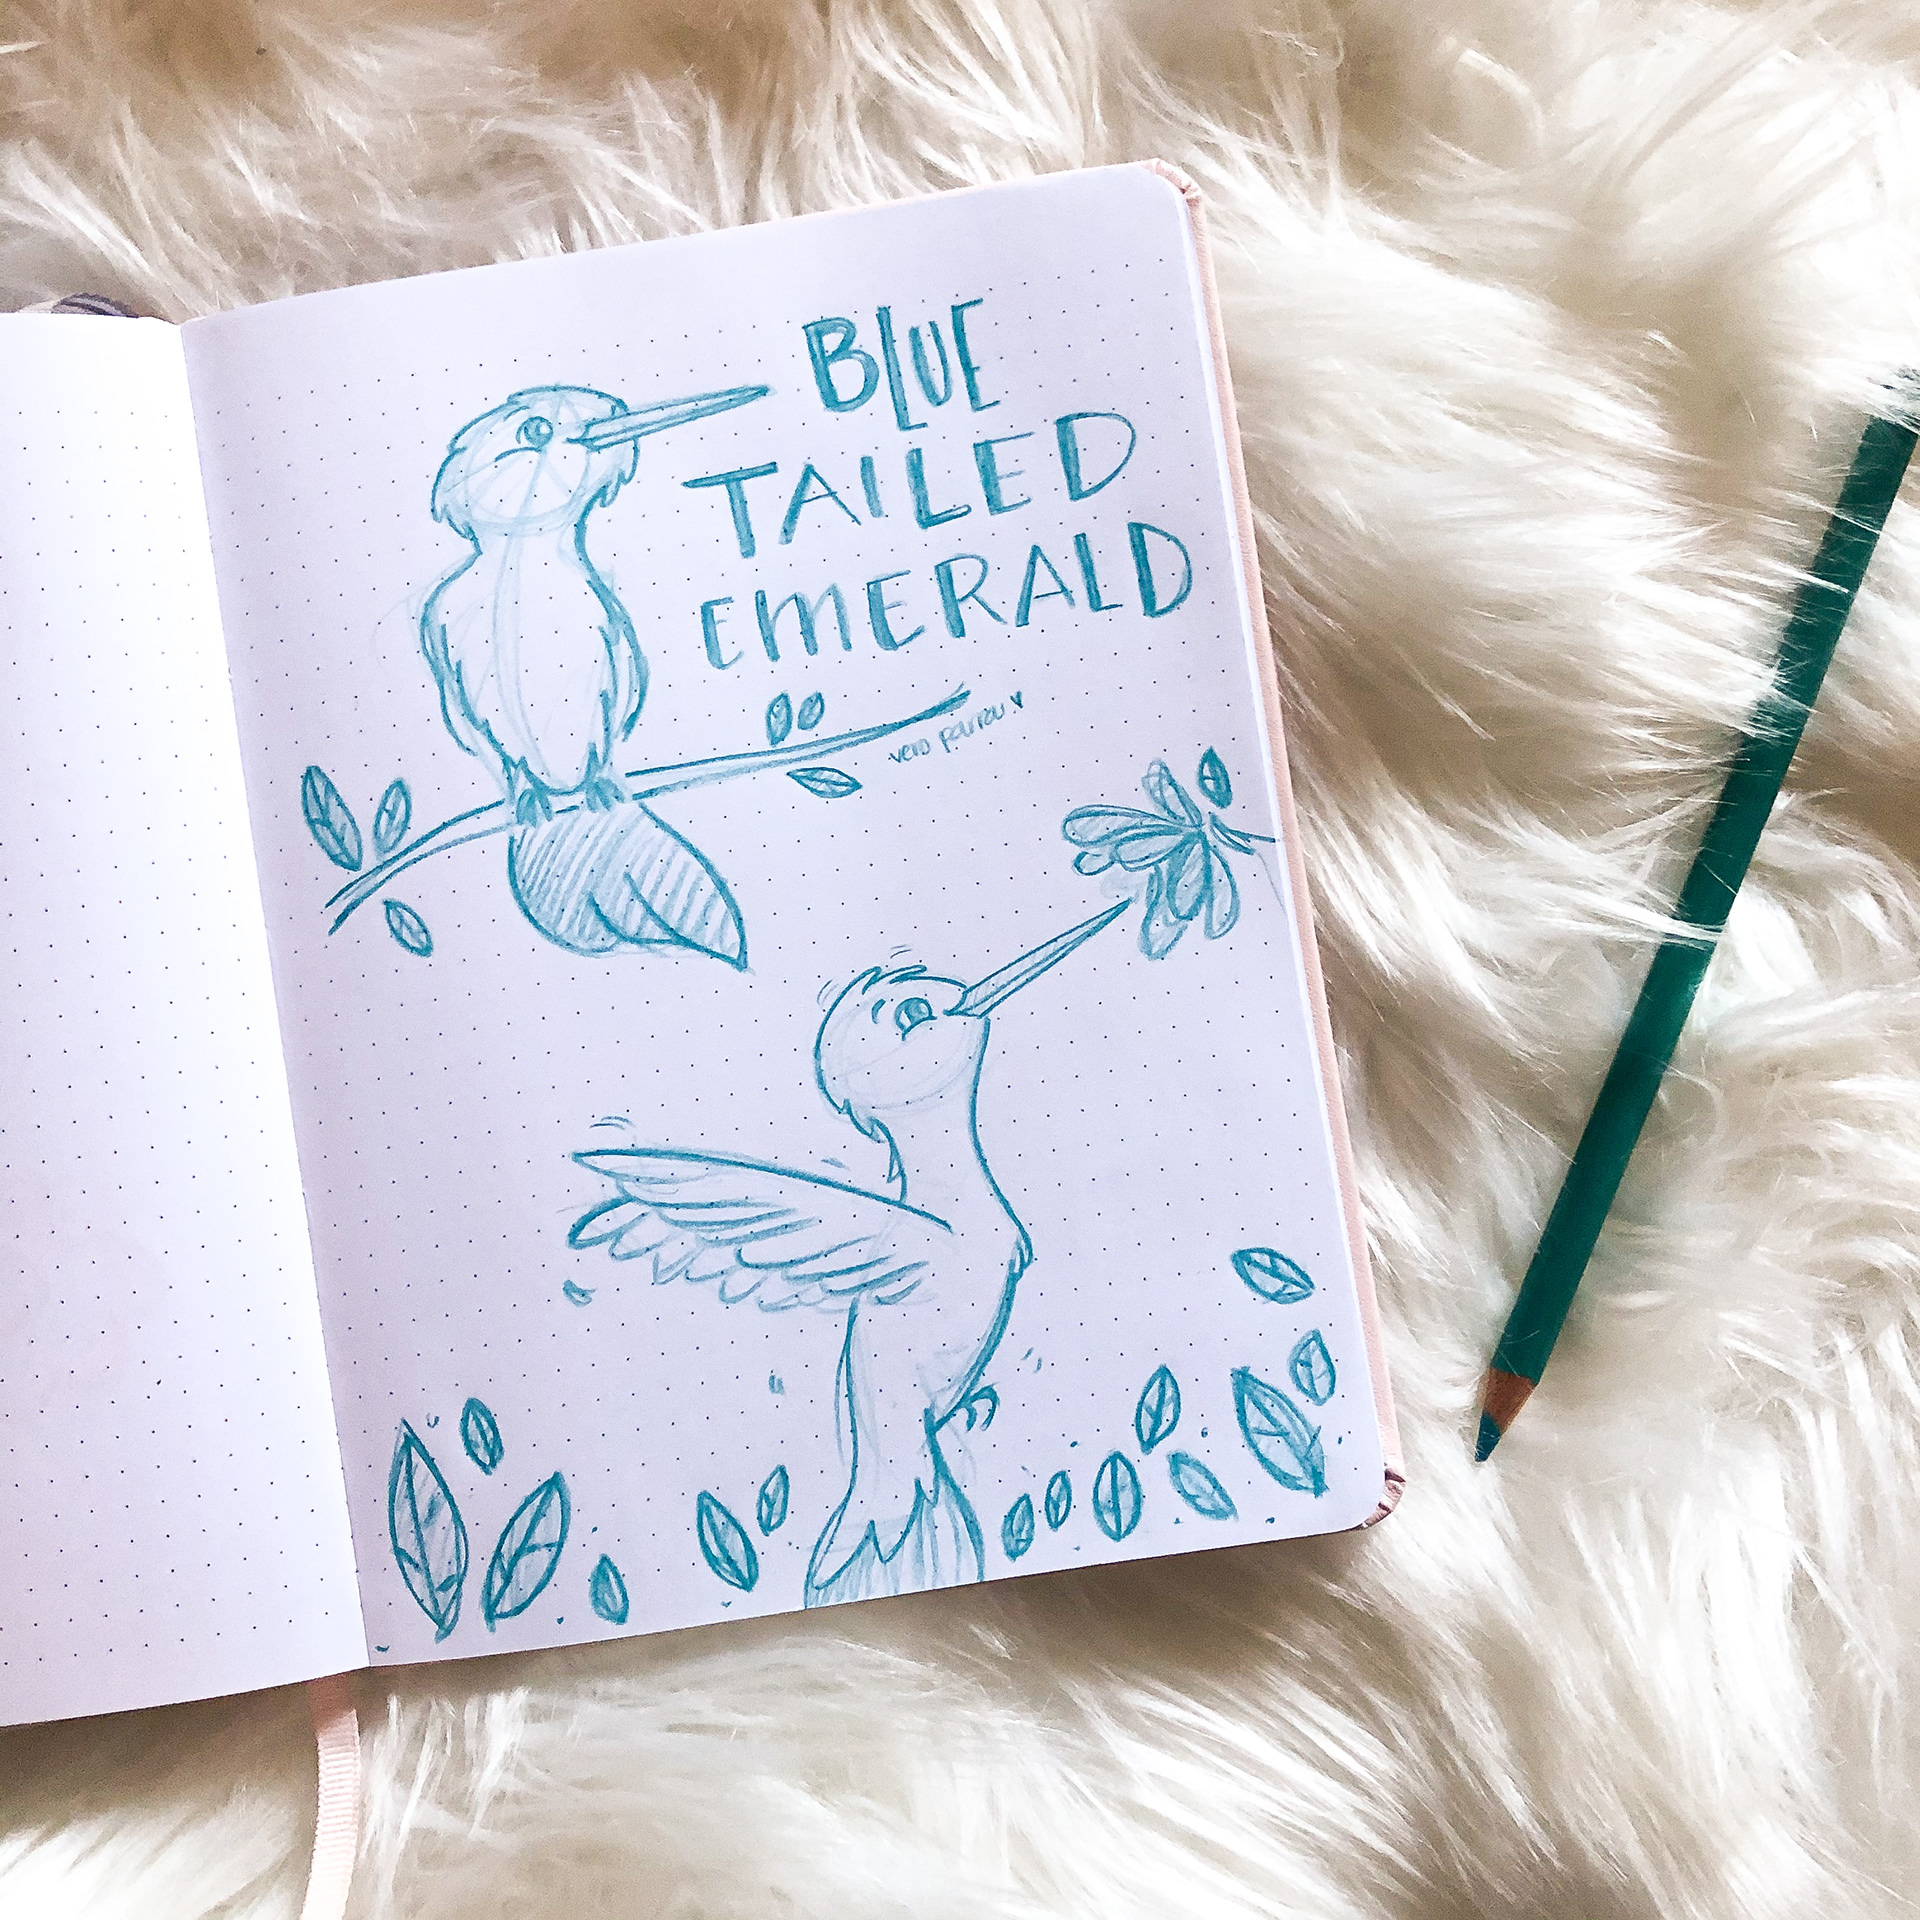 BLUE
TAILED
EMERALD
vero